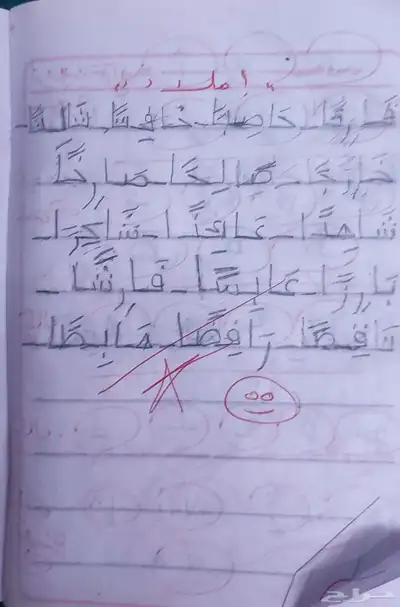 إملاء
فَارِغًا حَاصِبًا خَافِتًا ثَالِثًا
خَارِجًا صَالِحًا صَارِخًا
شَاهِدًا عَائِدًا شَاكِرًا
بَارِزًا عَابِسًا فَارِشًا
نَاقِصًا رَافِضًا هَابِطًا
حراج